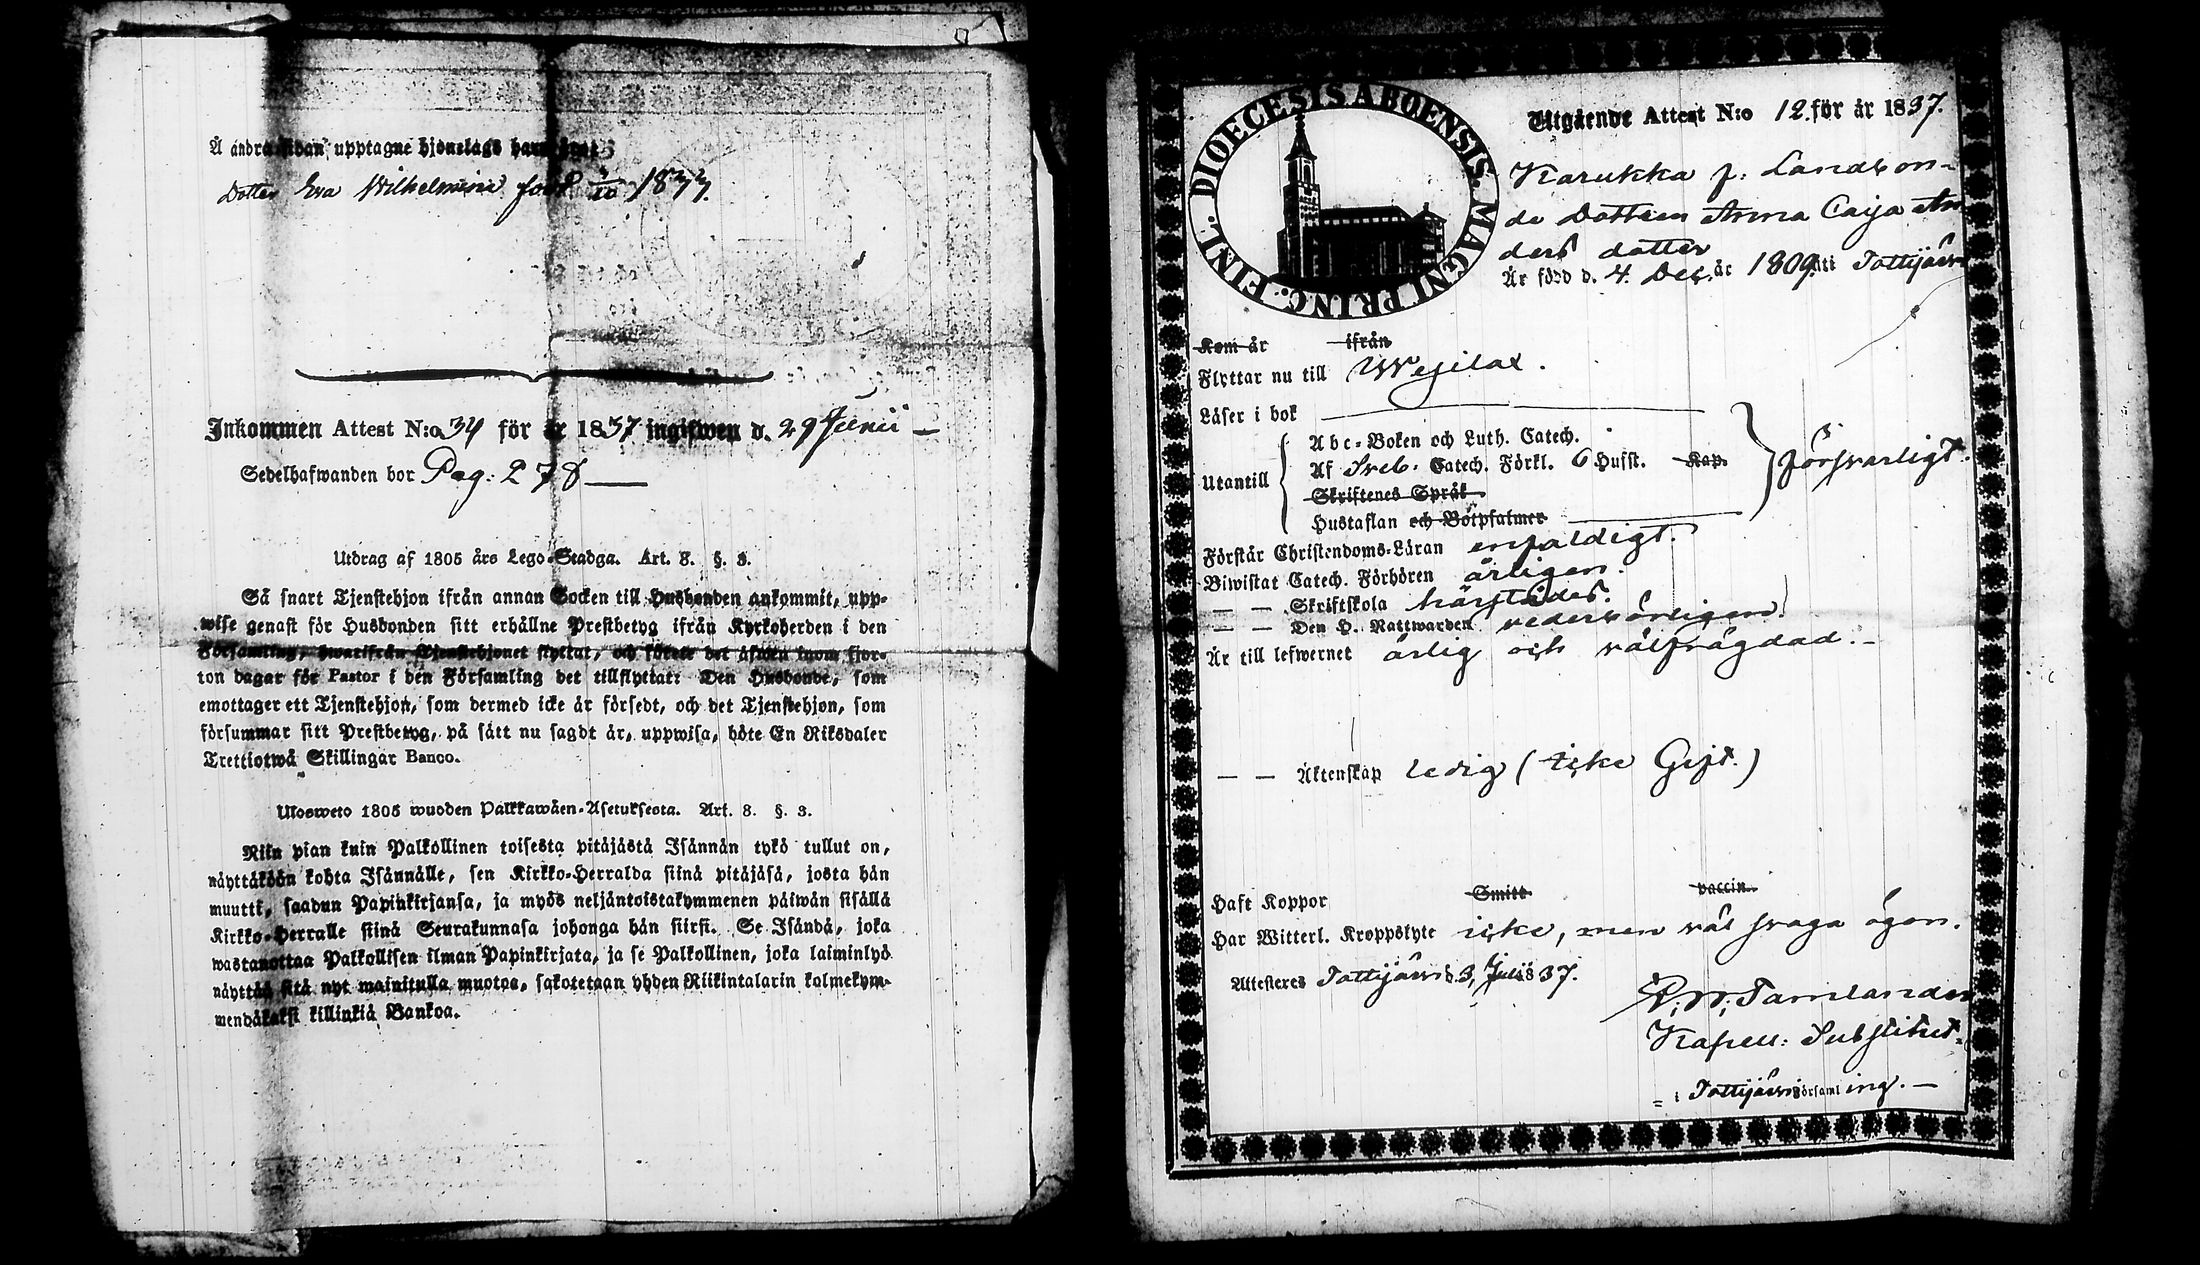 Å andra sidan upptagne hjonelags barn äro:
Dotter Eva Wilhelmina född 2/10 1833.
Inkommen Attest N:o 34 för år 1837 ingifwen d. 29 Junii
Sedelhafwanden bor Pag: 278
Utdrag af 1805 års Lego-Stadga. Art. 8. §. 3.
Så snart Tjenstehjon ifrån annan Socken till Husbonden ankommit, upp-
wise genast för Husbonden sitt erhållne Prestbetyg ifrån Kyrkoherden i den
Församling, hwarifrån Tjenstehjonet flyttat, och förete det äfwen inom fjor-
ton dagar för Pastor i den Församling det tillflyttat: Den Husbonde, som
emottager ett Tjenstehjon, som dermed icke är försedt, och det Tjenstehjon, som
försummar sitt Prestbetyg, på sätt nu sagdt är, uppwisa, böte En Riksdaler
Trettiotwå Skillingar Banco.
Ulosweto 1805 wuoden Palkkawäen-Asetuksesta. Art. 8. §. 3.
Niin pian kuin Palkollinen toisesta pitäjästä Isännän tykö tullut on,
näyttäköön kohta Isännälle, sen Kirkko-Herralda siinä pitäjäsä, josta hän
muutti, saadun Papinkirjansa, ja myös neljäntoistakymmenen päiwän sisällä
Kirkko-Herralle siinä Seurakunnasa johonga hän siirsi. Se Isändä, joka
wastanottaa Palkollisen ilman Papinkirjata, ja se Palkollinen, joka laiminlyö
näyttää sitä nyt mainitulla muotoa, sakotetaan yhden Riikintalarin kolmekym-
mendäkaksi killinkiä Bankoa.
DIOECESIS ABOENSIS. MAGNI PRINC. FINL.
Utgående Attest N:o 12. för år 1837.
Karukka f. Landbon-
de Dottren Anna Caija An
ders dotter
Är född d. 4. Dec. år 1809. uti Tottijärvi
Kom år ifrån
Flyttar nu till Wesilax.
Läser i bok
Utantill
Abc-Boken och Luth. Catech.
Af Sveb. Catech. Förkl. 6 Hufst. Kap.
Skriftenes Språk
Hustaflan och Botpsalmer
försvarligt.
Förstår Christendoms-Läran enfaldigt.
Biwistat Catech. Förhören årligen.
— — Skriftskola härstädes.
— — Den H. Nattwarden vedervörligen.
Är till lefwernet ärlig och välfrägdad.
— — Äktenskap ledig (icke Gift.)
Haft Koppor Smitt vaccin.
Har Witterl. Kroppslyte icke, men väl svaga ögon.
Attesteres Tottijärvi d. 3. Juli 1837.
Tamlander
Kapell: Substitut
i Tottijärvi församling.